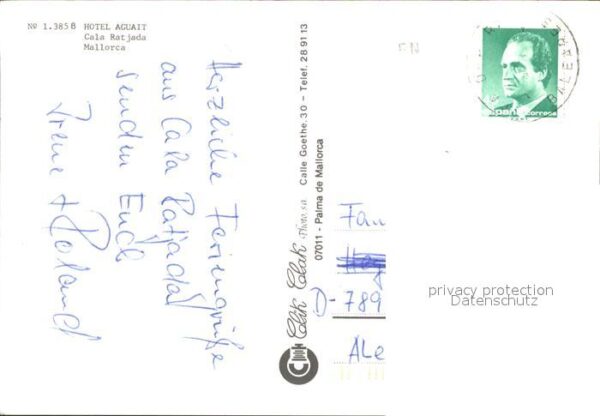 Nº 1.385 B HOTEL AGUAIT
Cala Ratjada
Mallorca
Herzliche Feriengrüße
aus Cala Ratjada
senden Euch
Irene + Roland
Clik Clak Photo, s.a. Calle Goethe, 30 – Telef. 28 91 13
07011 - Palma de Mallorca
España correos
BALEARES
Fam
D-789
Ale
privacy protection
Datenschutz